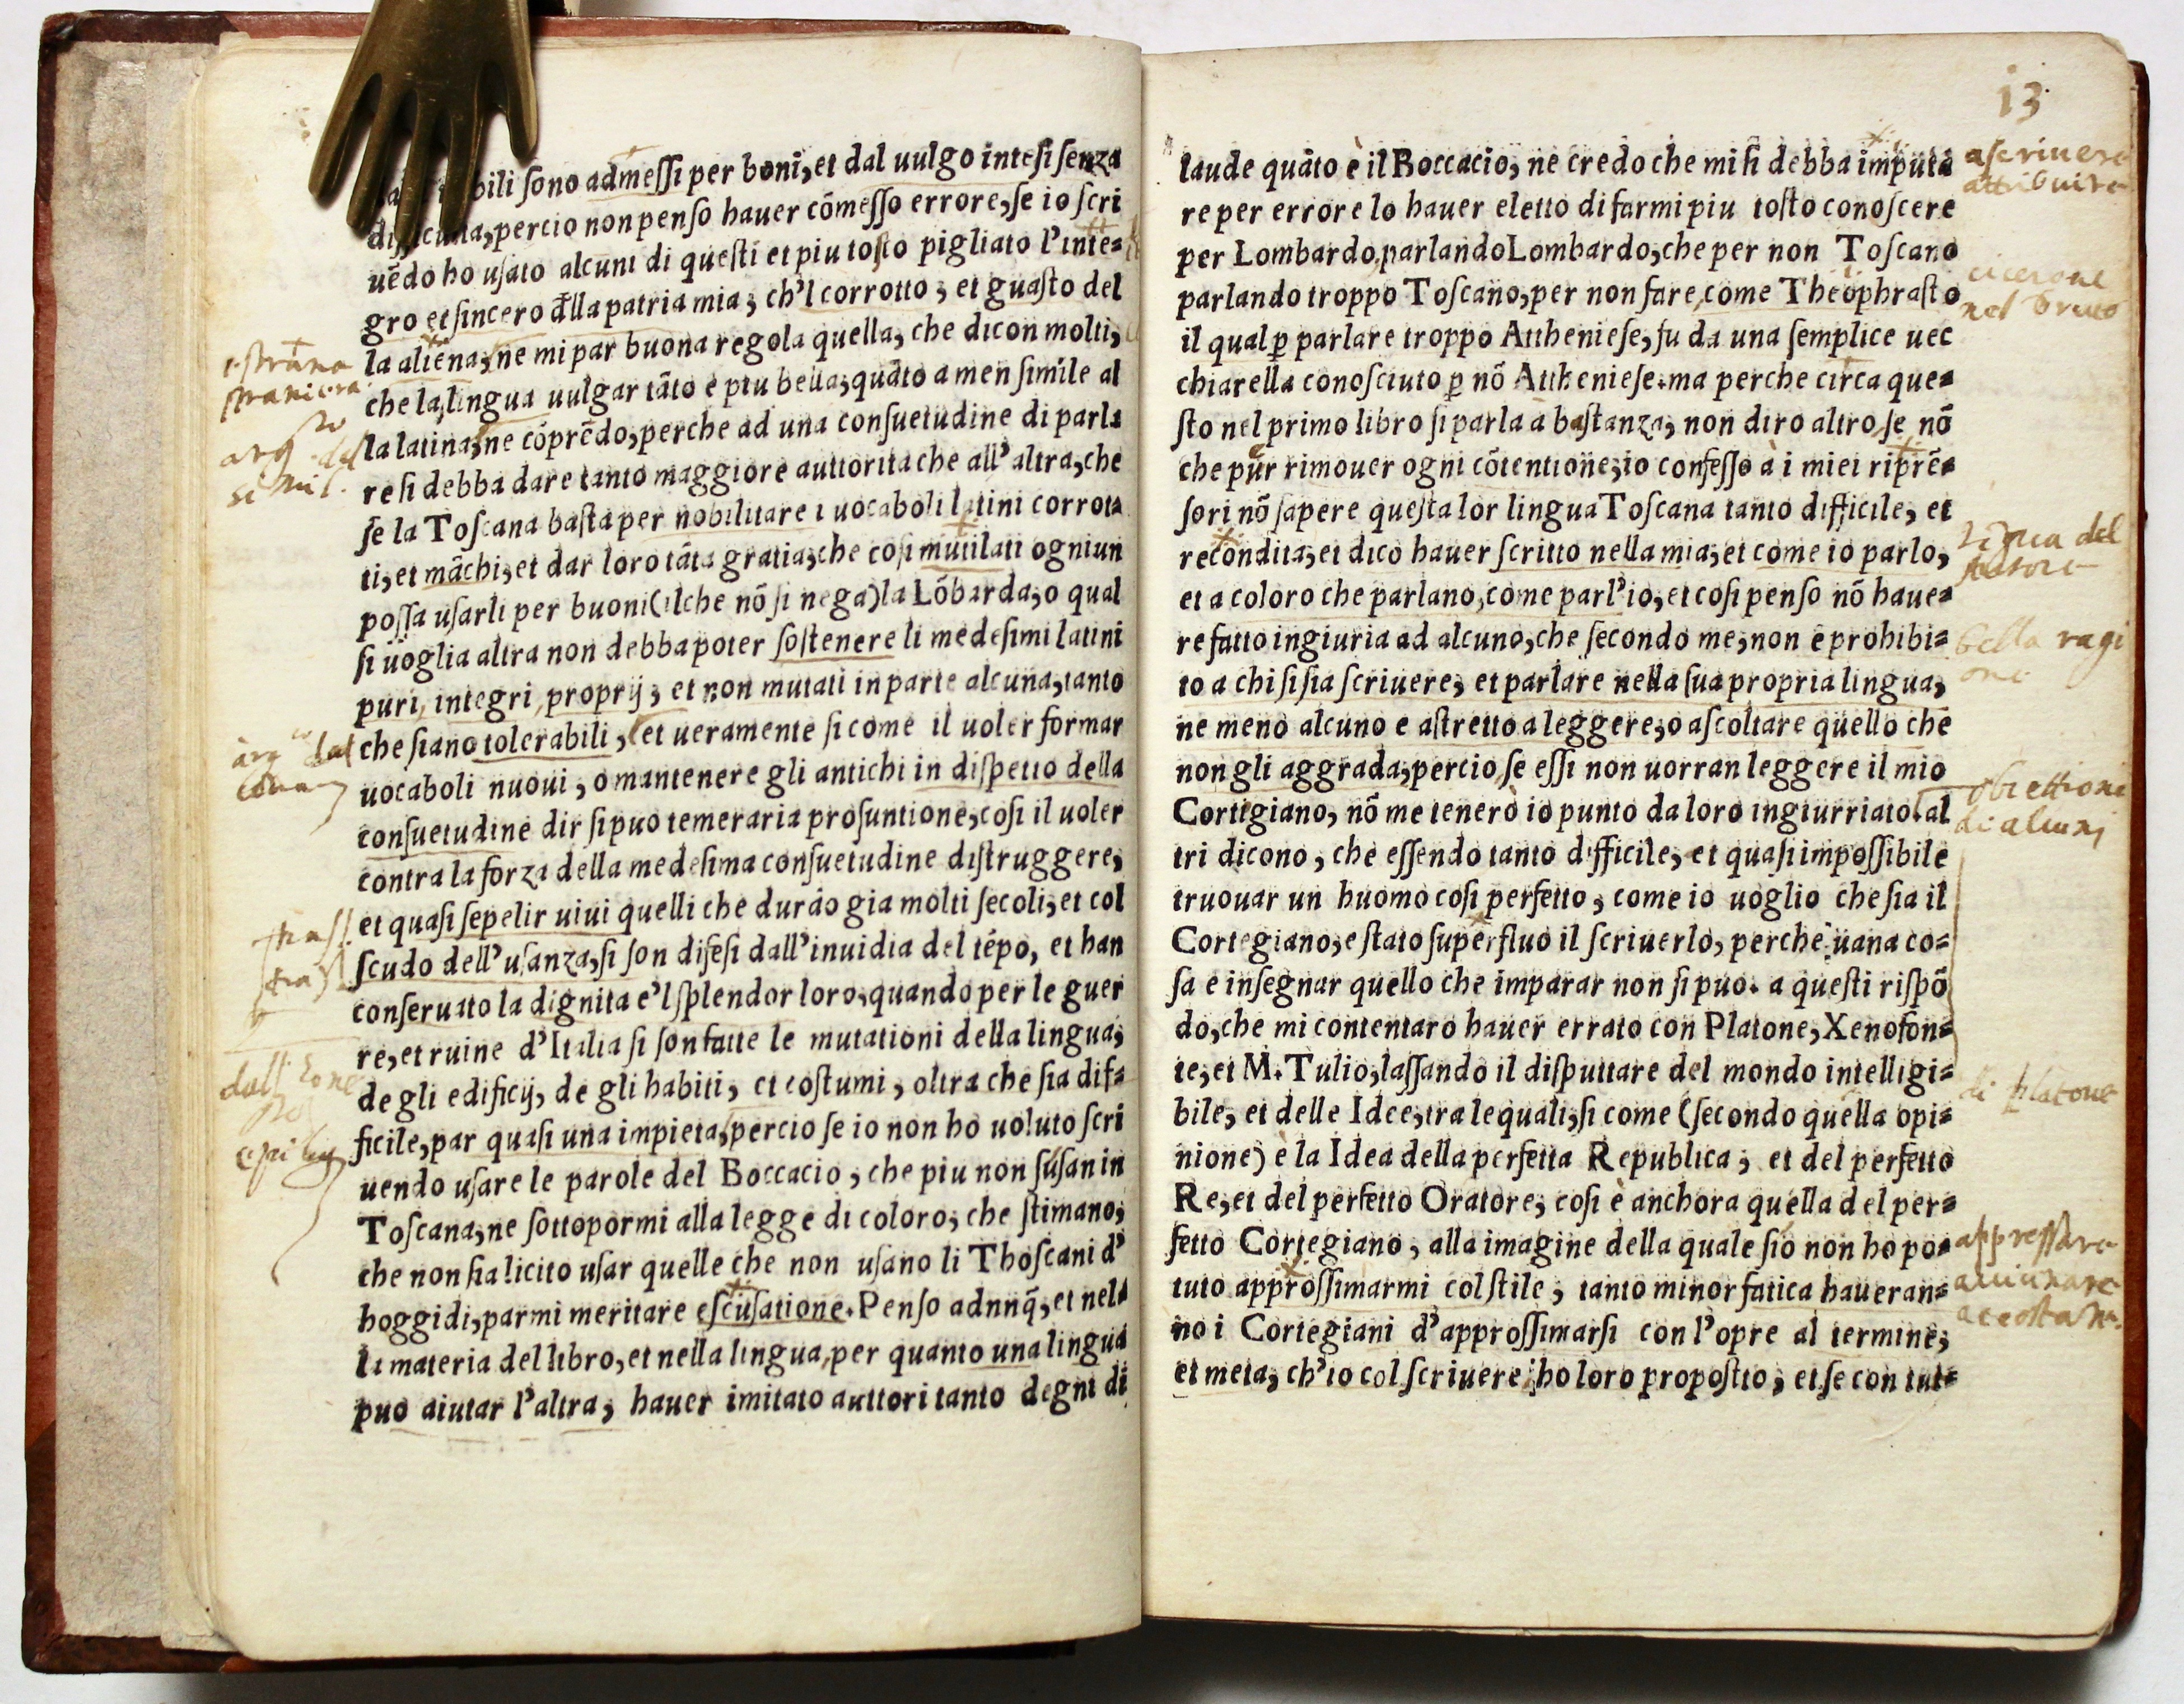 bili ſono admeſſi per boni, et dal uulgo inteſi ſenza
percio non penſo hauer cōmeſſo errore, ſe io ſcri
uēdo ho uſato alcuni di queſti et piu toſto pigliato l'inte=
gro et ſincero đlla patria mia; ch'l corrotto; et guaſto del
la aliena, ne mi par buona regola quella, che dicon molti,
che la lingua uulgar tāto è piu bella, quāto a men ſimile al
la latina, ne cōprēdo, perche ad una conſuetudine di parla
re ſi debba dare tanto maggiore auttorita che all'altra, che
ſe la Toſcana baſta per nobilitare i uocaboli latini corrot=
ti, et māchi, et dar loro tāta gratia, che coſi mutilati ogniun
poſſa uſarli per buoni (ilche nō ſi nega) la Lōbarda, o qual
ſi uoglia altra non debba poter ſoſtenere li medeſimi latini
puri, integri, proprij; et non mutati in parte alcuna, tanto
che ſiano tolerabili, et ueramente ſi come il uoler formar
uocaboli nuoui, o mantenere gli antichi in diſpetto della
conſuetudine dir ſi puo temeraria proſuntione, coſi il uoler
contra la forza della medeſima conſuetudine diſtruggere,
et quaſi ſepelir uiui quelli che durāo gia molti ſecoli, et col
ſcudo dell'uſanza, ſi ſon difeſi dall'inuidia del tēpo, et han
conſeruato la dignita e'l ſplendor loro, quando per le guer
re, et ruine d'Italia ſi ſon fatte le mutationi della lingua,
de gli edificij, de gli habiti, et coſtumi, oltra che ſia dif=
ficile, par quaſi una impieta, percio ſe io non ho uoluto ſcri
uendo uſare le parole del Boccacio, che piu non ſuſan in
Toſcana, ne ſottopormi alla legge di coloro; che ſtimano;
che non ſia licito uſar quelle che non uſano li Thoſcani d'
hoggidi, parmi meritare eſcuſatione. Penſo adnnq̃, et nel=
la materia del libro, et nella lingua, per quanto una lingua
puo aiutar l'altra; hauer imitato auttori tanto degni di
13
laude quāto è il Boccacio, ne credo che mi ſi debba imputa
re per errore lo hauer eletto di farmi piu toſto conoſcere
per Lombardo, parlando Lombardo, che per non Toſcano
parlando troppo Toſcano, per non fare, come Theophraſto
il qual ꝑ parlare troppo Attheniese, fu da una ſemplice uec
chiarella conoſciuto ꝑ nō Attheniese. ma perche circa que=
ſto nel primo libro ſi parla à baſtanza, non diro altro, ſe nō
che pur rimouer ogni cōtentione, io confeſſo à i miei riprē=
ſori nō ſapere queſta lor lingua Toſcana tanto difficile, et
recondita, et dico hauer ſcritto nella mia, et come io parlo,
et a coloro che parlano, come parl'io, et coſi penſo nō haue=
re fatto ingiuria ad alcuno, che ſecondo me, non è prohibi=
to a chi ſi ſia ſcriuere, et parlare nella ſua propria lingua,
ne meno alcuno e aſtretto a leggere, o aſcoltare quello che
non gli aggrada, percio, ſe eſſi non uorran leggere il mio
Cortegiano, nō me tenerò io punto da loro ingiurriato. al
tri dicono, che eſſendo tanto difficile, et quaſi impoſſibile
truouar un huomo coſi perfetto, come io uoglio che ſia il
Cortegiano, e ſtato ſuperfluo il ſcriuerlo, perche uana co=
ſa e inſegnar quello che imparar non ſi puo. a queſti riſpō
do, che mi contentaro hauer errato con Platone, Xenofon=
te, et M. Tulio, laſſando il diſputtare del mondo intelligi=
bile, et delle Idee, tra lequali, ſi come (ſecondo quella opi=
nione) è la Idea della perfetta Republica; et del perfetto
Re, et del perfetto Oratore; coſi è anchora quella del per=
fetto Cortegiano, alla imagine della quale ſio non ho po=
tuto approſſimarmi col ſtile, tanto minor fatica haueran=
no i Cortegiani d'approſſimarſi con l'opre al termine;
et meta; ch'io col ſcriuere ho loro propoſtto; et ſe con tut=
aſcriuere
attribuire
cicerone
nel bruto
bella ragi
one
obiettioni
di alcuni
di platone
appreſſare
auicinare